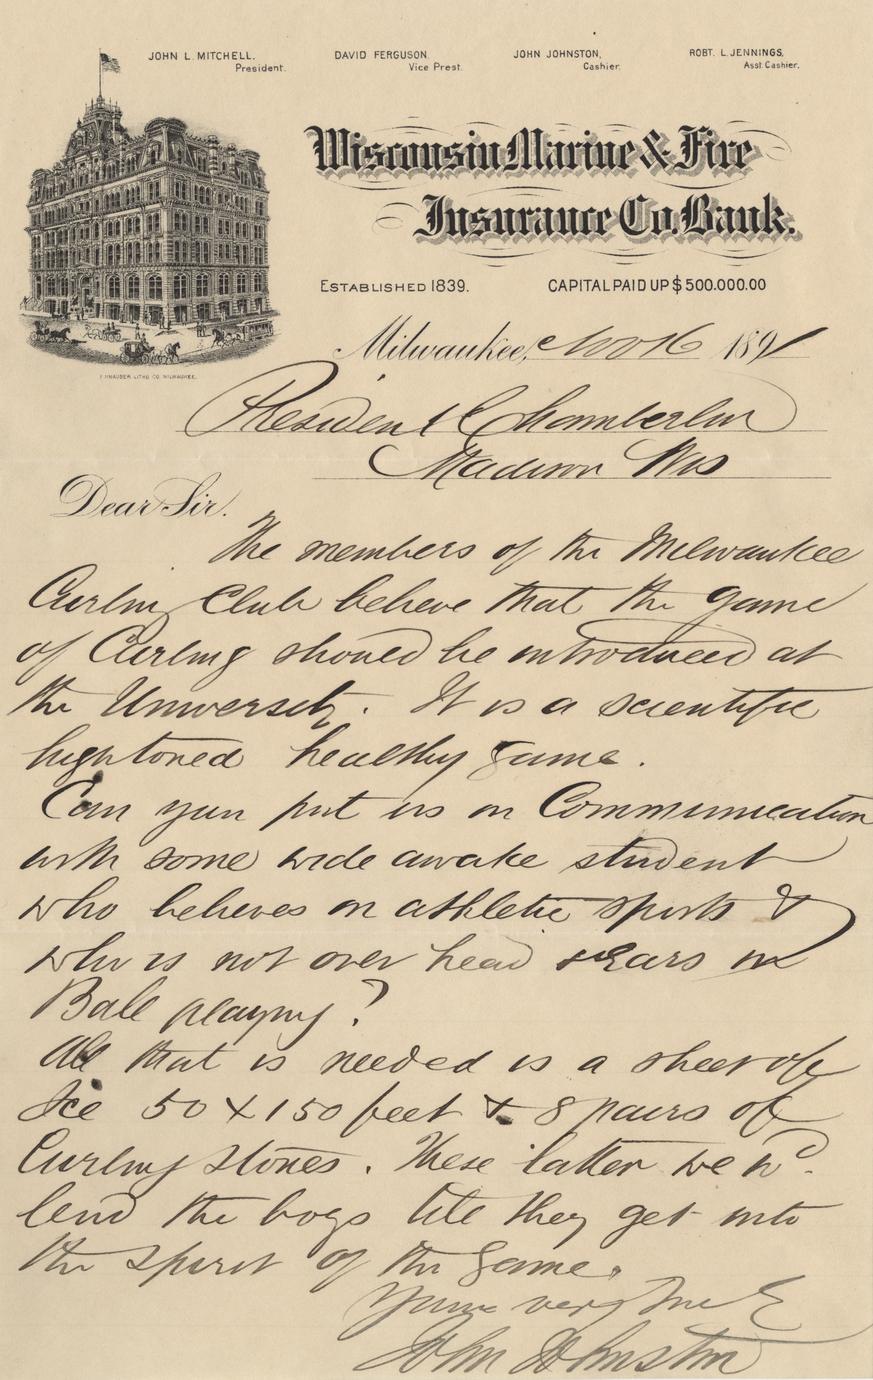 JOHN L. MITCHELL, President. DAVID FERGUSON, Vice Prest. JOHN JOHNSTON, Cashier. ROBT. L. JENNINGS, Asst. Cashier.
Wisconsin Marine & Fire
Insurance Co. Bank.
ESTABLISHED 1839. CAPITAL PAID UP $500.000.00
Milwaukee, Nov 16 1891
LITHO. CO. MILWAUKEE.
President Chamberlin
Madison Wis
Dear Sir.
The members of the Milwaukee
Curling Club believe that the game
of Curling should be introduced at
the University. It is a scientific
hightoned healthy game.
Can you put us in Communication
with some wide awake student
who believes in athletic sports &
who is not over head & Ears in
Ball playing?
All that is needed is a sheet of
Ice 50 X 150 feet & 8 pairs of
Curling stones. These latter we wd.
lend the boys till they get into
the spirit of the game.
Yours very Truly
John Johnston